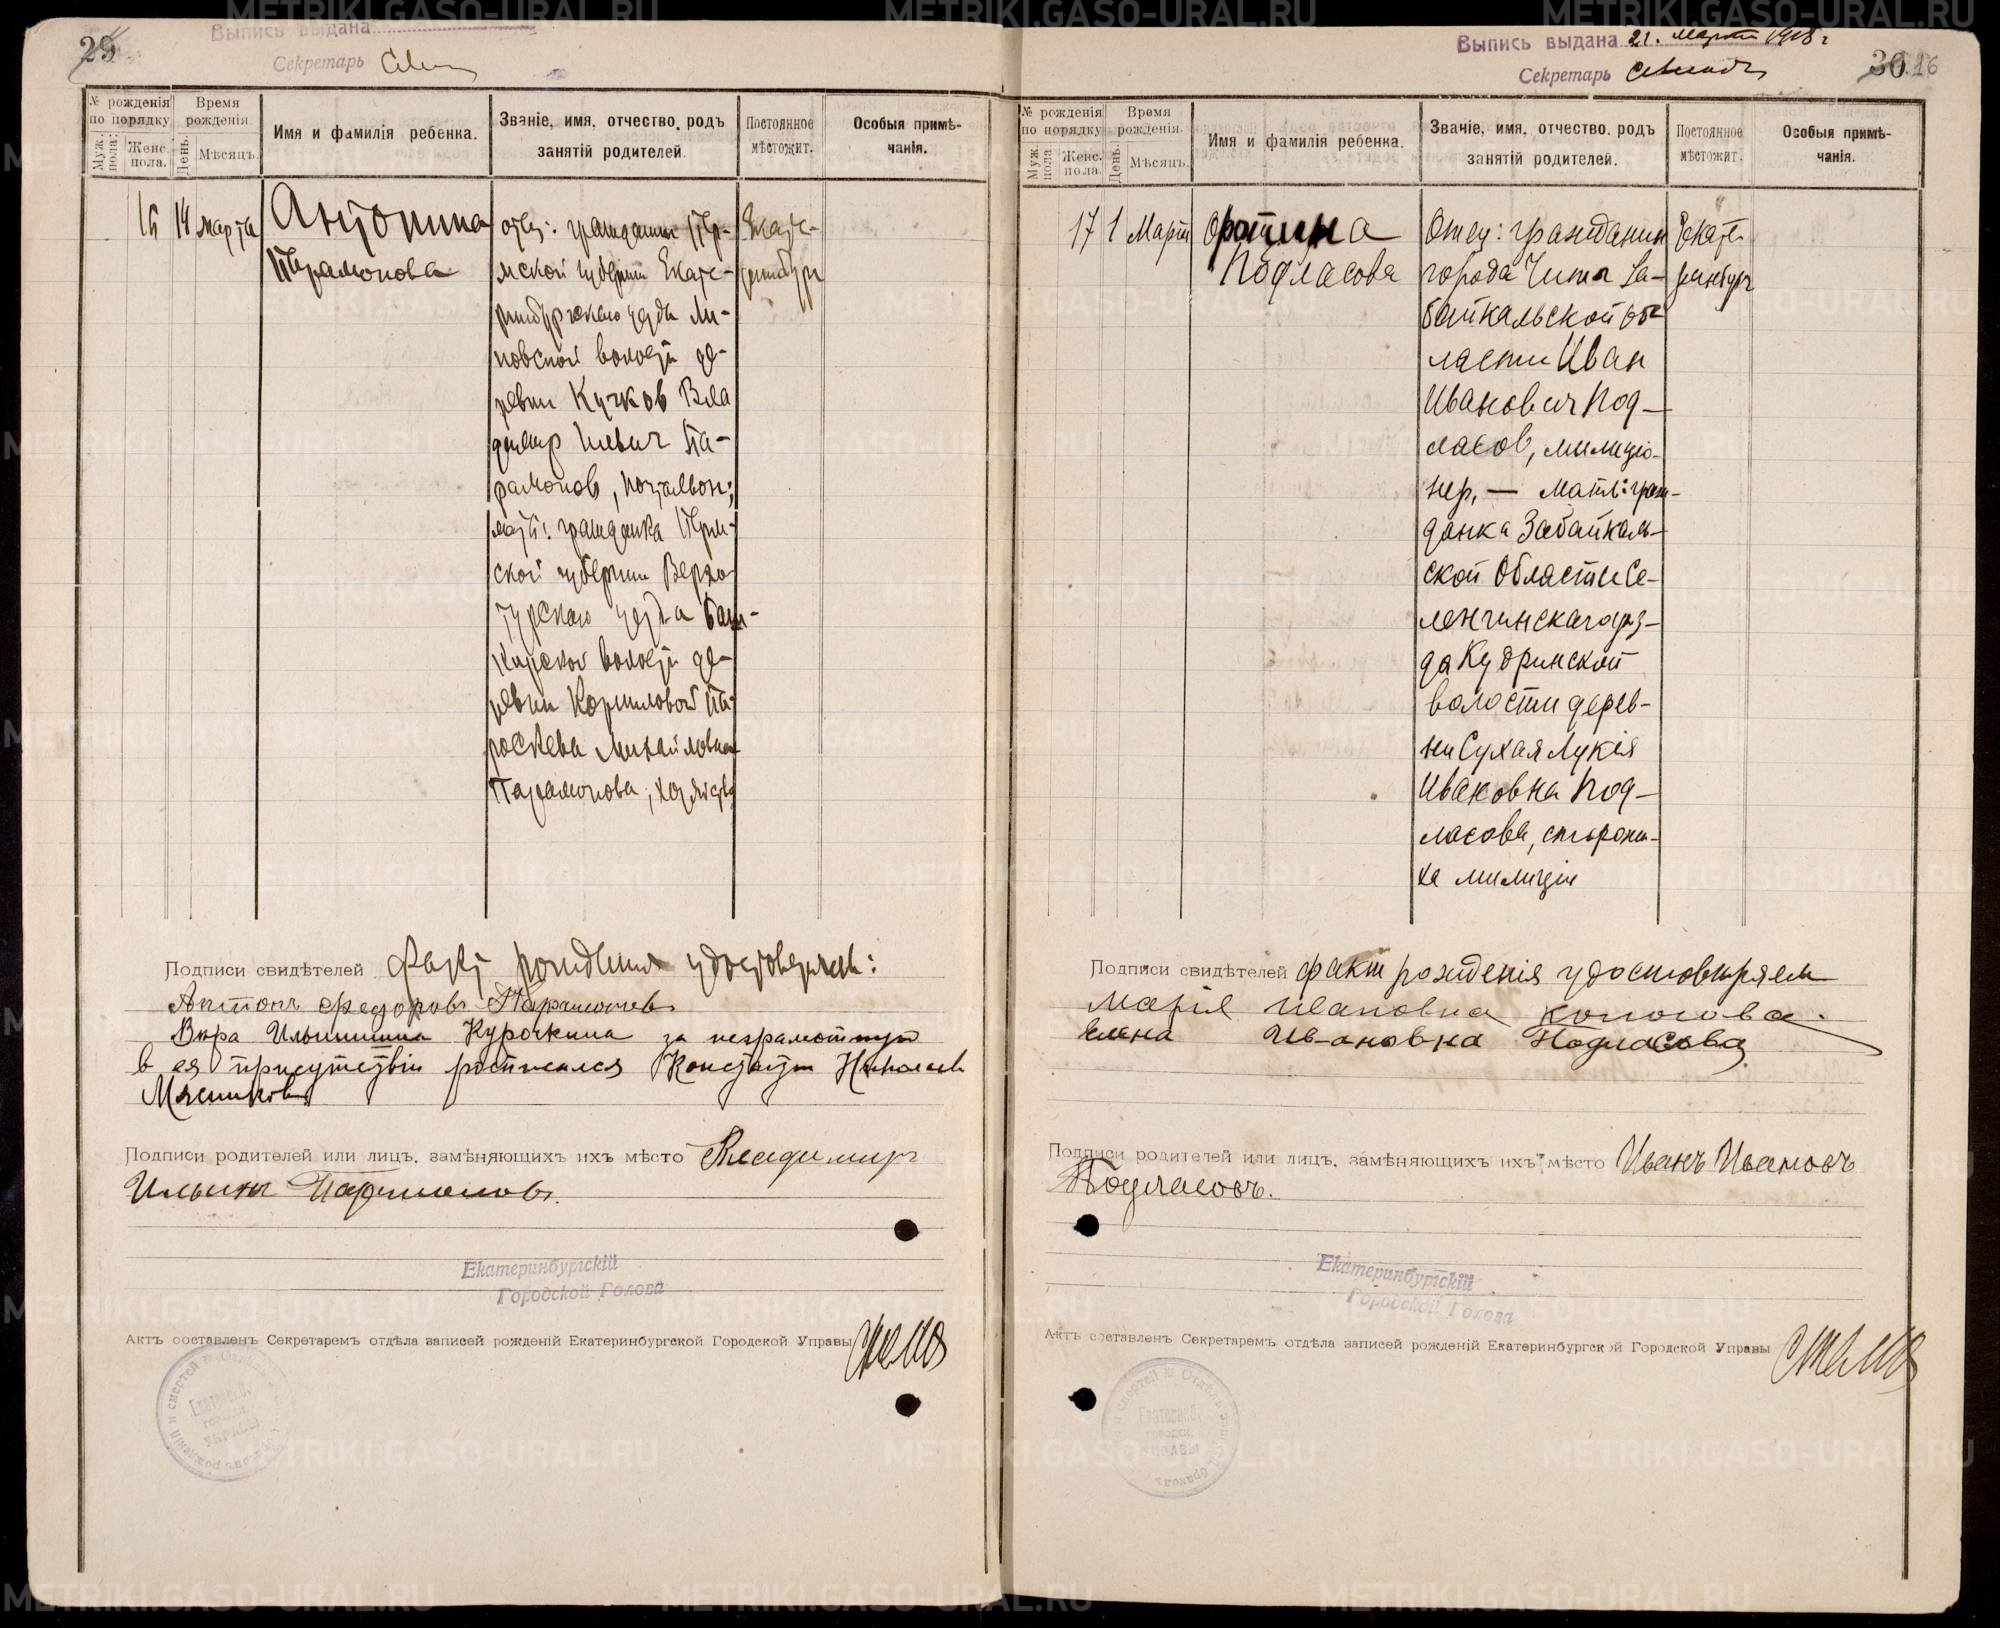 29
Выпись выдана
Секретарь
№ рожденія по порядку
Муж. пола.
Женс. пола.
Время рожденія.
День.
Мѣсяцъ.
Имя и фамилія ребенка.
Званіе, имя, отчество, родъ занятій родителей.
Постоянное мѣстожит.
Особыя примѣчанія.
16 14 марта
Антонина
Парамонова
отец: гражданин Пер-
мской губернии Екате-
ринбургскаго уезда
волости де-
ревни Кучков Вла
димир Ильич Па-
рамонов, почтальон;
мать: гражданка Перм-
ской губернии Верхо-
турскаго уезда
волости де-
ревни Корниловой Па-
раскева Михайловна
Парамонова, хозяйство
Екате-
ринбург
Подписи свидѣтелей Факт рождения удостоверяем:
Антонъ Федоровъ
Вѣра Ильинична Курочкина за неграмотную
в ея присутствіи росписался Константин Николаев
Мясников
Подписи родителей или лицъ, замѣняющихъ ихъ мѣсто Владимир
Ильинъ Парамоновъ.
Екатеринбургскій
Городской Голова
Актъ составленъ Секретаремъ отдѣла записей рожденій Екатеринбургской Городской Управы
Выпись выдана 21. марта 1918 г
Секретарь
30 16
№ рожденія по порядку
Муж. пола
Женс. пола.
Время рожденія.
День.
Мѣсяцъ.
Имя и фамилія ребенка.
Званіе, имя, отчество, родъ занятій родителей.
Постоянное мѣстожит.
Особыя примѣчанія.
17 1 Март
Фотина
Подласова
Отец: гражданин
города Читы За-
байкальской об-
ласти Иван
Иванович Под-
ласов, милицио-
нер, — мать: граж-
данка Забайкаль-
ской Области Се-
ленгинскаго уез-
да Кударинской
волости дерев-
ни Сухая Лукія
Ивановна Под-
ласова, сторожи-
ха милиціи
Екате-
ринбург
Подписи свидѣтелей факт рожденія удостоверяем
Марія Ивановна
Елена Ивановна Подласова
Подписи родителей или лицъ, замѣняющихъ ихъ мѣсто Иванъ Ивановъ
Подласовъ.
Екатеринбургскій
Городской Голова
Актъ составленъ Секретаремъ отдѣла записей рожденій Екатеринбургской Городской Управы
METRIKI.GASO-URAL.RU